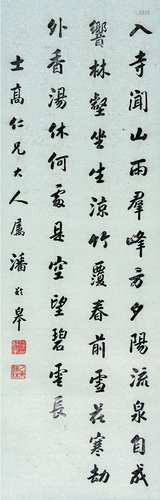 入寺聞山雨羣峰方夕陽流泉自成
響林壑坐生涼竹覆春前雪花寒劫
外香湯休何處是空望碧雲長
士高仁兄大人屬 潘齡皋